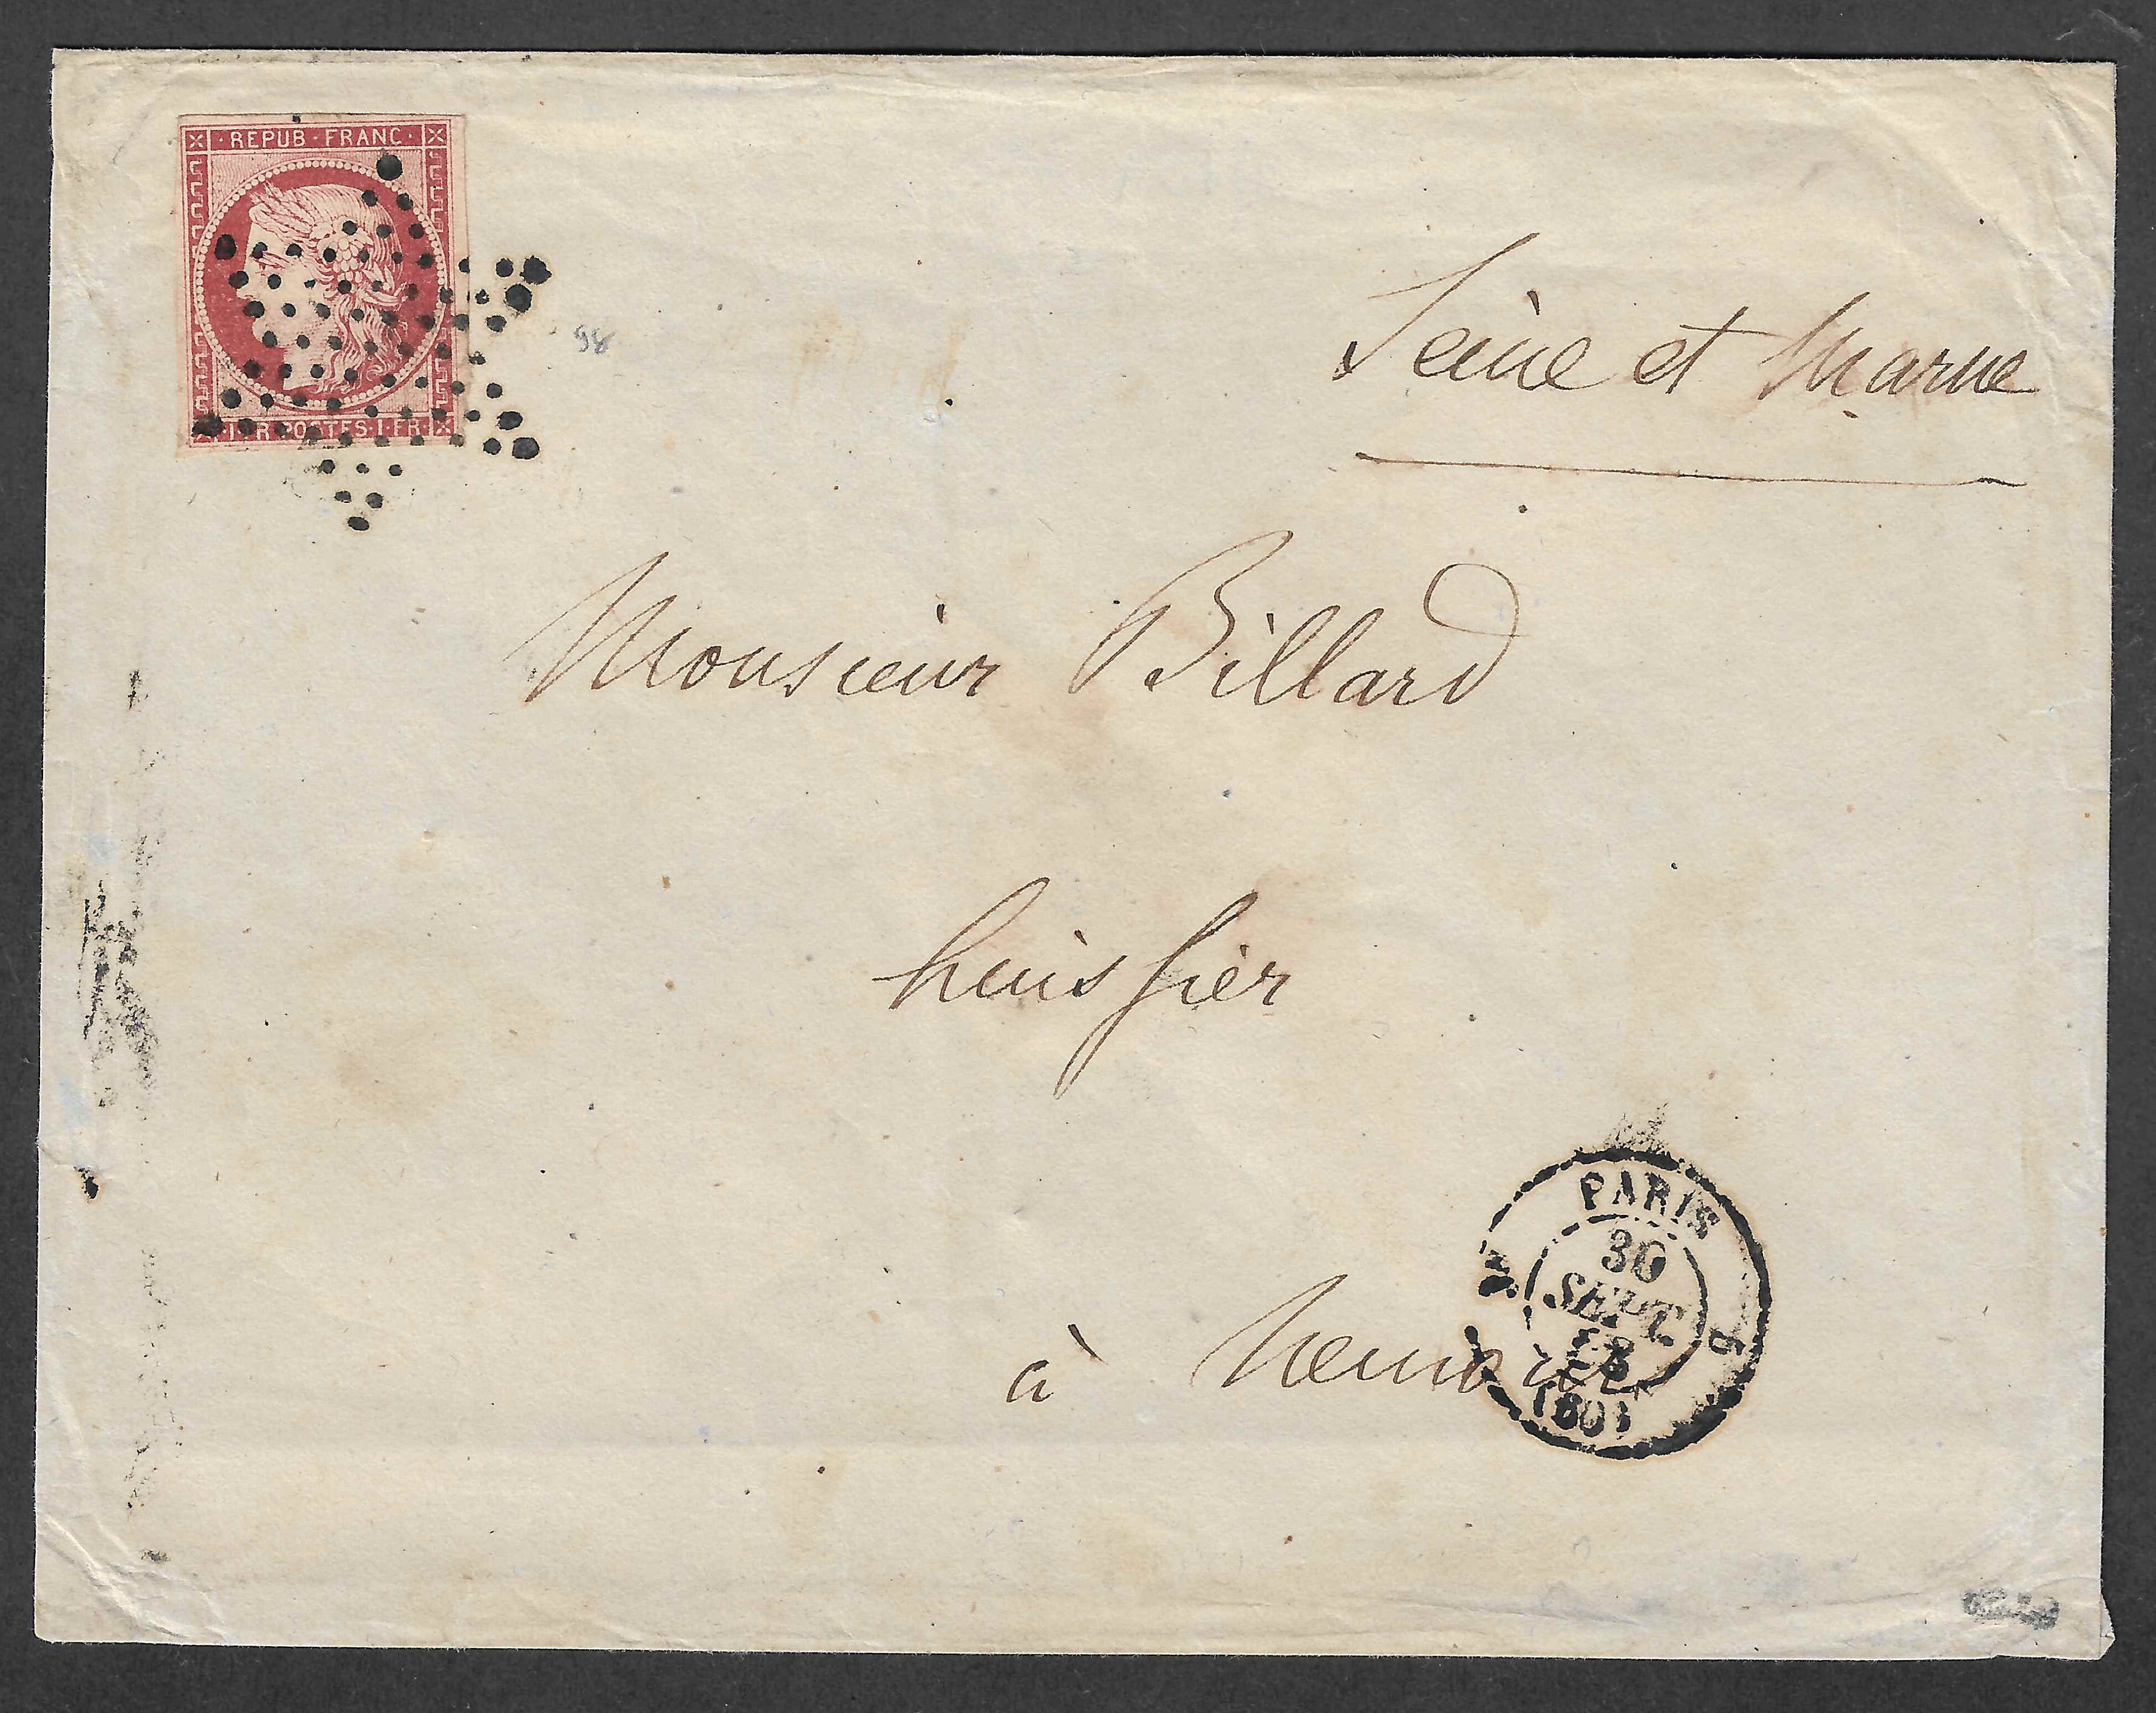 REPUB · FRANC ·
1 · FR · POSTES · 1 · FR ·
98
Seine et Marne
Monsieur Billard
huissier
à Nemours
PARIS
30
SEPT.
(60)